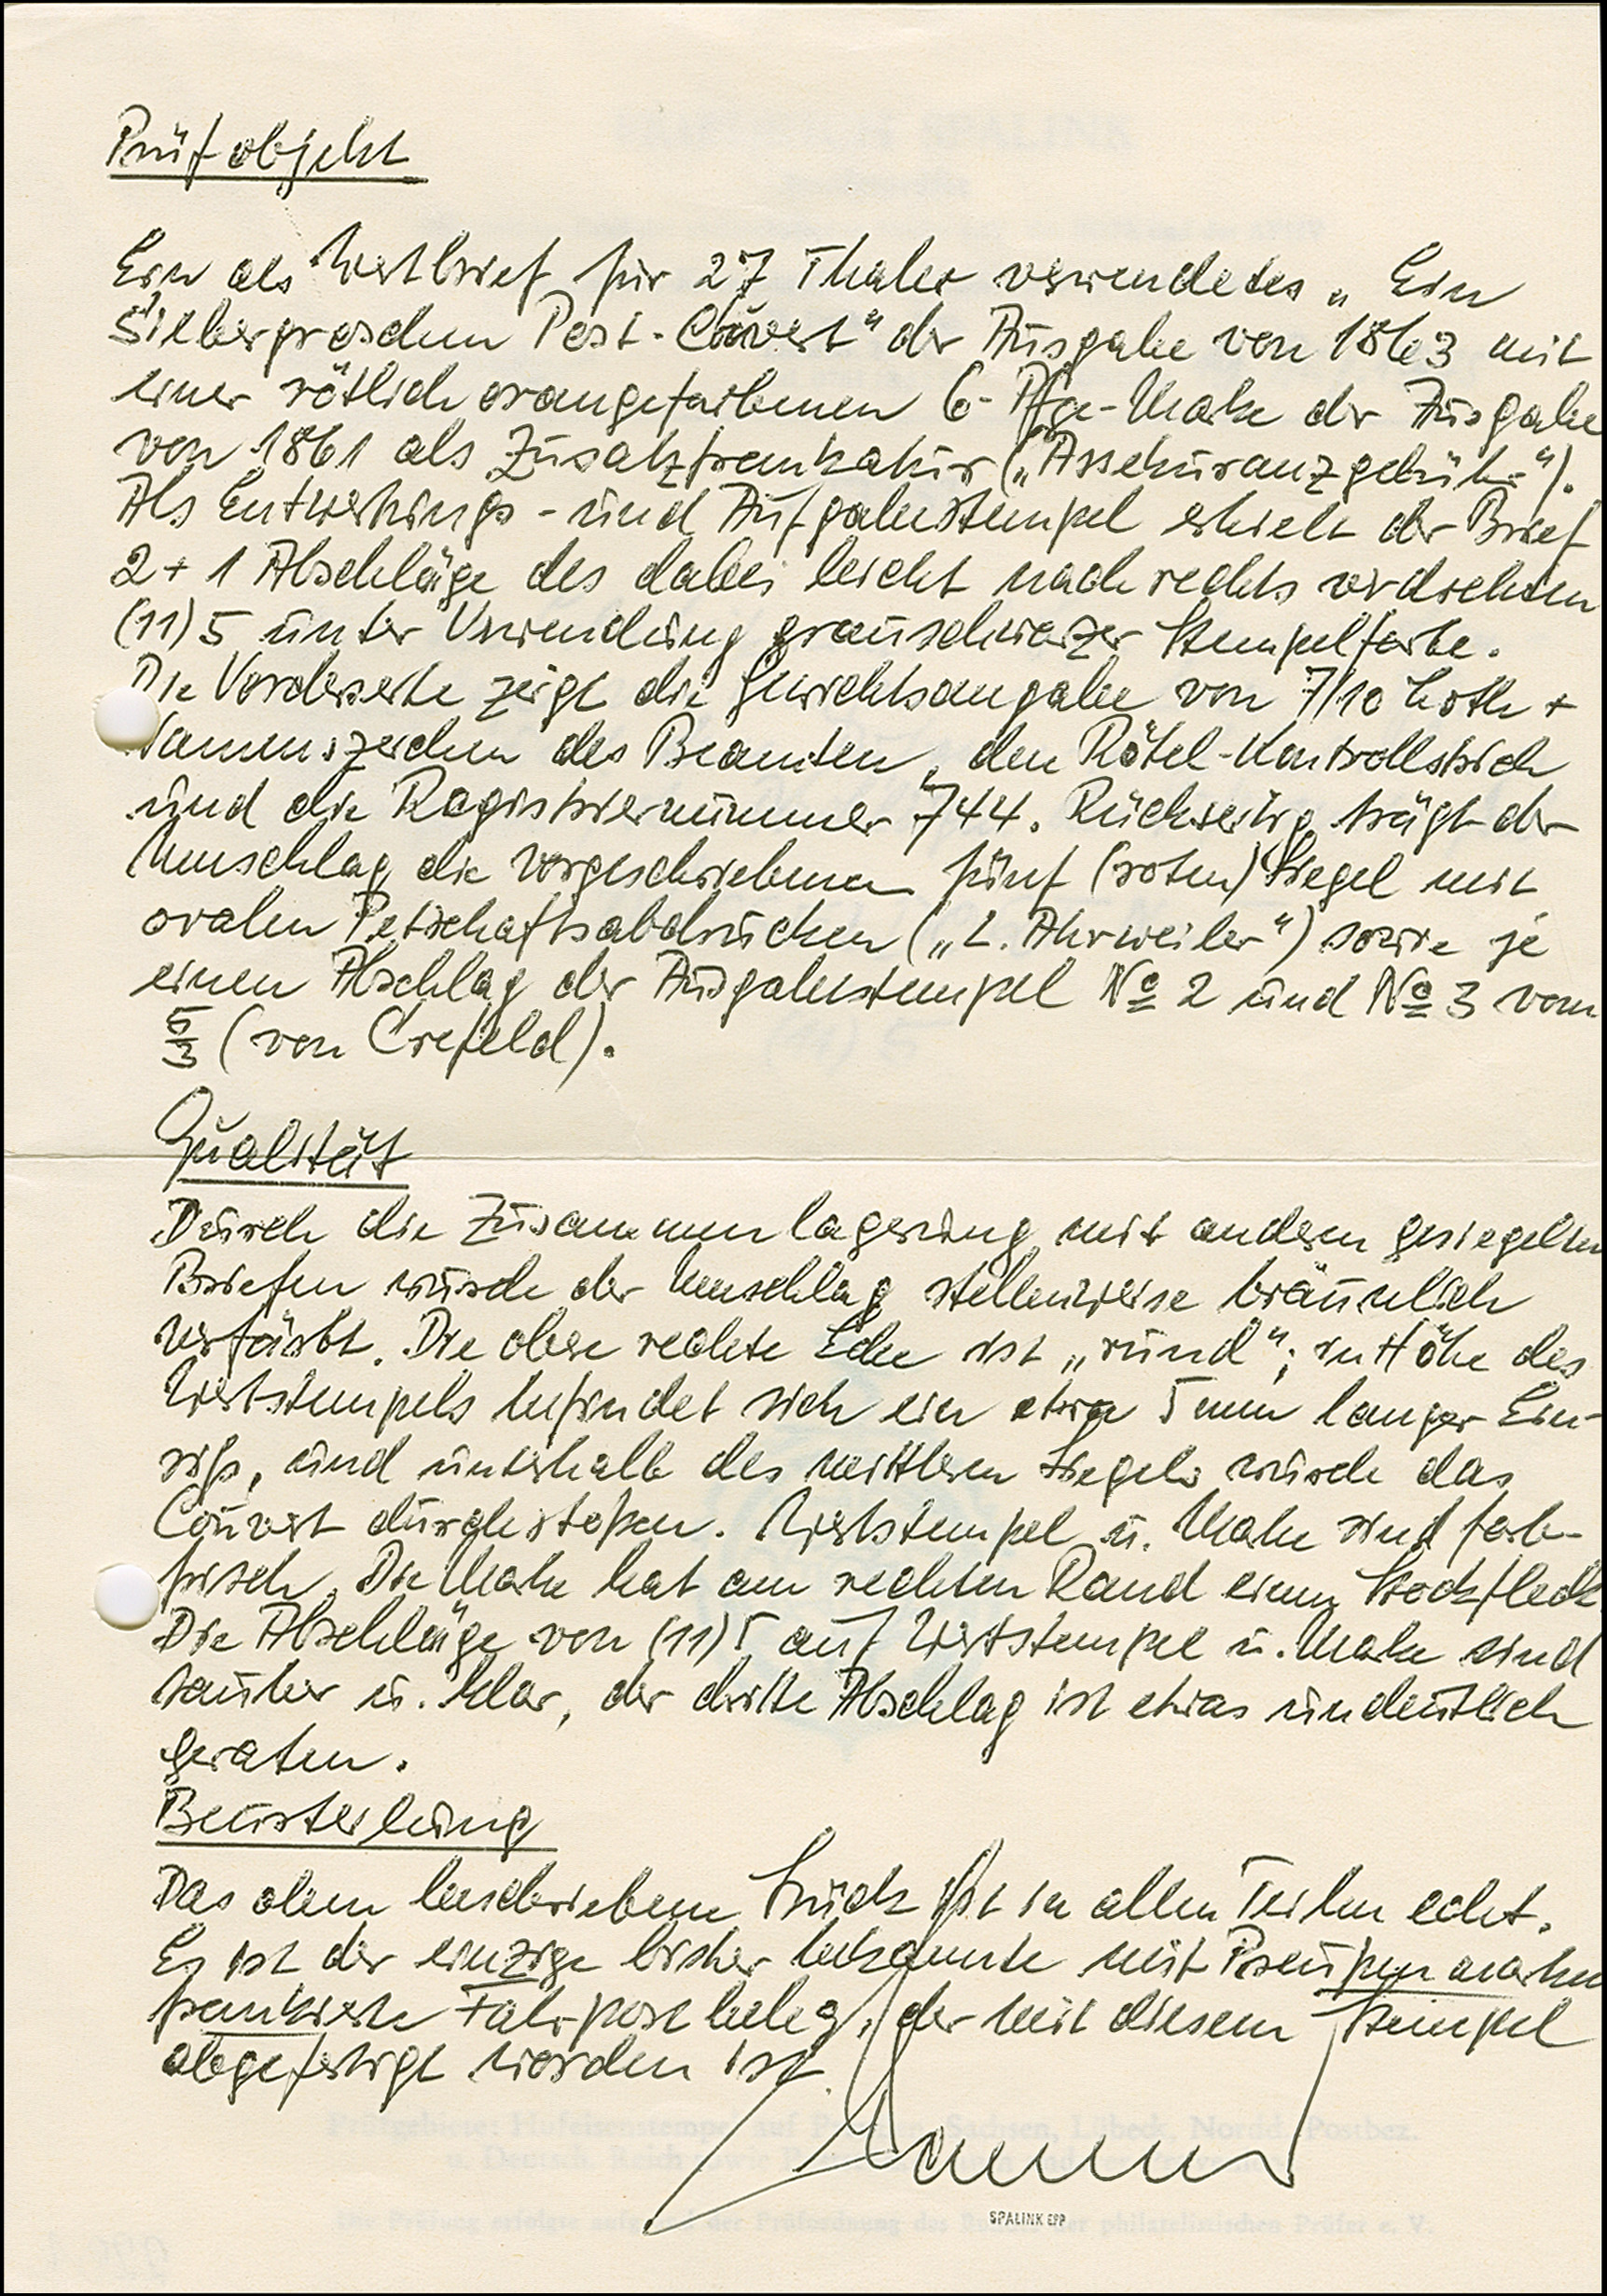 Prüfobjekt
Ein als Wertbrief für 27 Thaler verwendetes „Ein
Silbergroschen Post-Couvert“ der Ausgabe von 1863 mit
einer rötlich orangefarbenen 6-Pfge-Marke der Ausgabe
von 1861 als Zusatzfrankatur („Assekuranzgebühr“).
Als Entwertungs- und Aufgabestempel erhielt der Brief
2 + 1 Abschläge des dabei leicht nach rechts verdrehten
(11) 5 unter Verwendung grauschwarzer Stempelfarbe.
Die Vorderseite zeigt die Gewichtsangabe von 7/10 Loth +
Namenszeichen des Beamten, den Rötel-Kontrollstrich
und die Registriernummer 744. Rückseitig trägt der
Umschlag die vorgeschriebenen fünf (roten) Siegel mit
ovalen Petschaftsabdrücken („L. Ahrweiler“) sowie je
einen Abschlag der Ausgabestempel No 2 und No 3 vom
5/3 (von Crefeld).
Qualität
Durch die Zusammenlagerung mit anderen gesiegelten
Briefen wurde der Umschlag stellenweise bräunlich
verfärbt. Die obere rechte Ecke ist „rund“; in Höhe des
Wertstempels befindet sich ein etwa 5 mm langer Ein-
riß, und unterhalb des mittleren Siegels wurde das
Couvert durchstoßen. Wertstempel u. Marke sind farb-
frisch. Die Marke hat am rechten Rand einen Stockfleck
Die Abschläge von (11) 5 auf Wertstempel u. Marke sind
sauber u. klar, der dritte Abschlag ist etwas undeutlich
geraten.
Beurteilung
Das oben beschriebene Stück ist in allen Teilen echt.
Es ist der einzige bisher bekannte mit Preußenmarken
frankierte Fahrpostbeleg, der mit diesem Stempel
abgefertigt worden ist.
SPALINK EPP
Prüfgebiete: Hufeisenstempel auf Preußen, Sachsen, Lübeck, Nordd. Postbez.
u. Deutsch. Reich sowie
Die Prüfung erfolgte aufgrund der Prüfordnung des Bundes der philatelistischen Prüfer e. V.